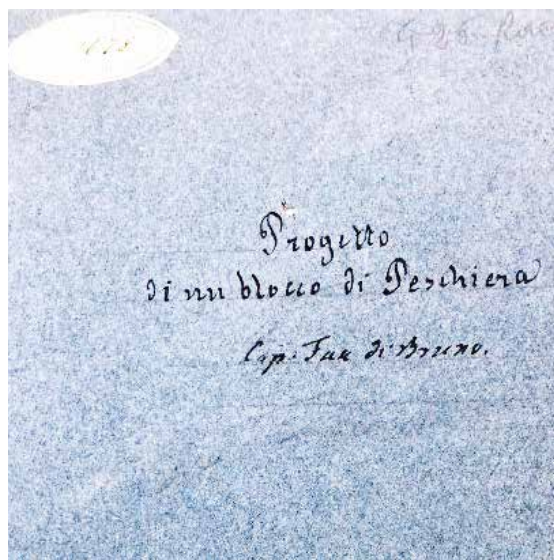 Progetto
di un blocco di Peschiera
Cap. Faà di Bruno.